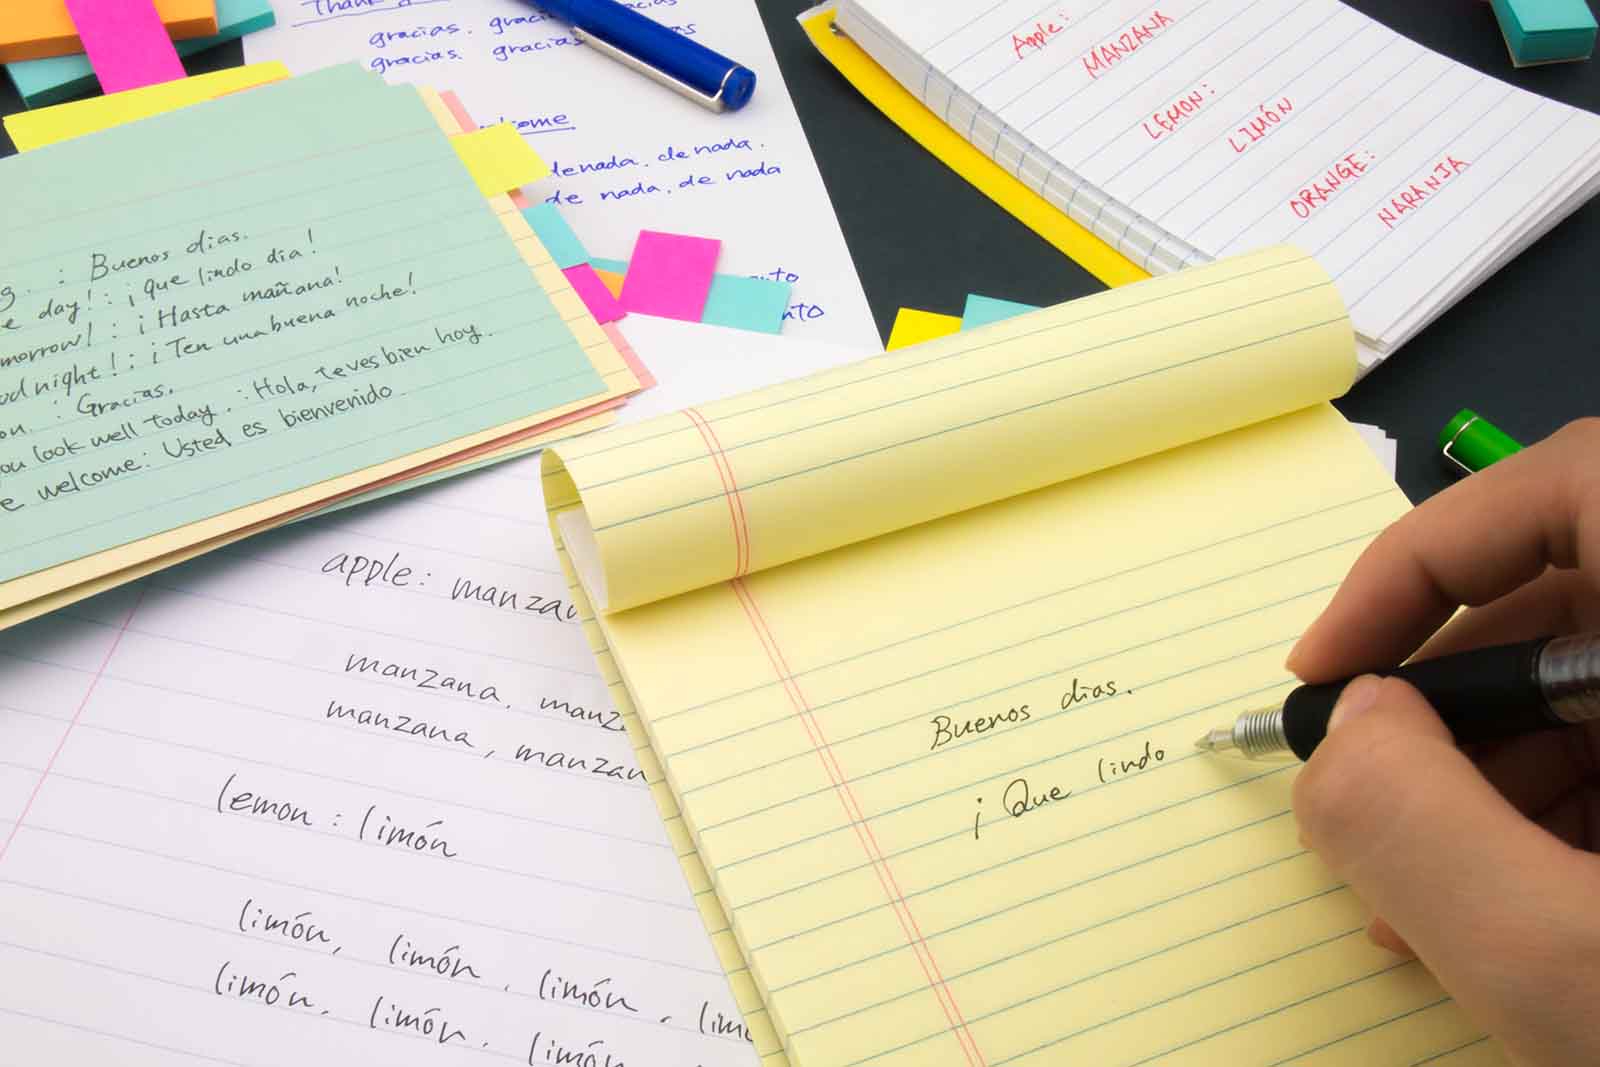 Thank
gracias. gracias
gracias. gracias
de nada. de nada.
de nada, de nada
Apple:
MANZANA
LEMON:
LIMÓN
ORANGE:
NARANJA
: Buenos dias.
day! : ¡ que lindo dia!
: ¡ Hasta mañana!
night! : ¡ Ten una buena noche!
: Gracias.
look well today. : Hola, te ves bien hoy.
welcome: Usted es bienvenido
apple: 
manzana, 
manzana, 
lemon : limón
limón, limón, limón,
limón, limón,
Buenos dias.
¡ Que lindo